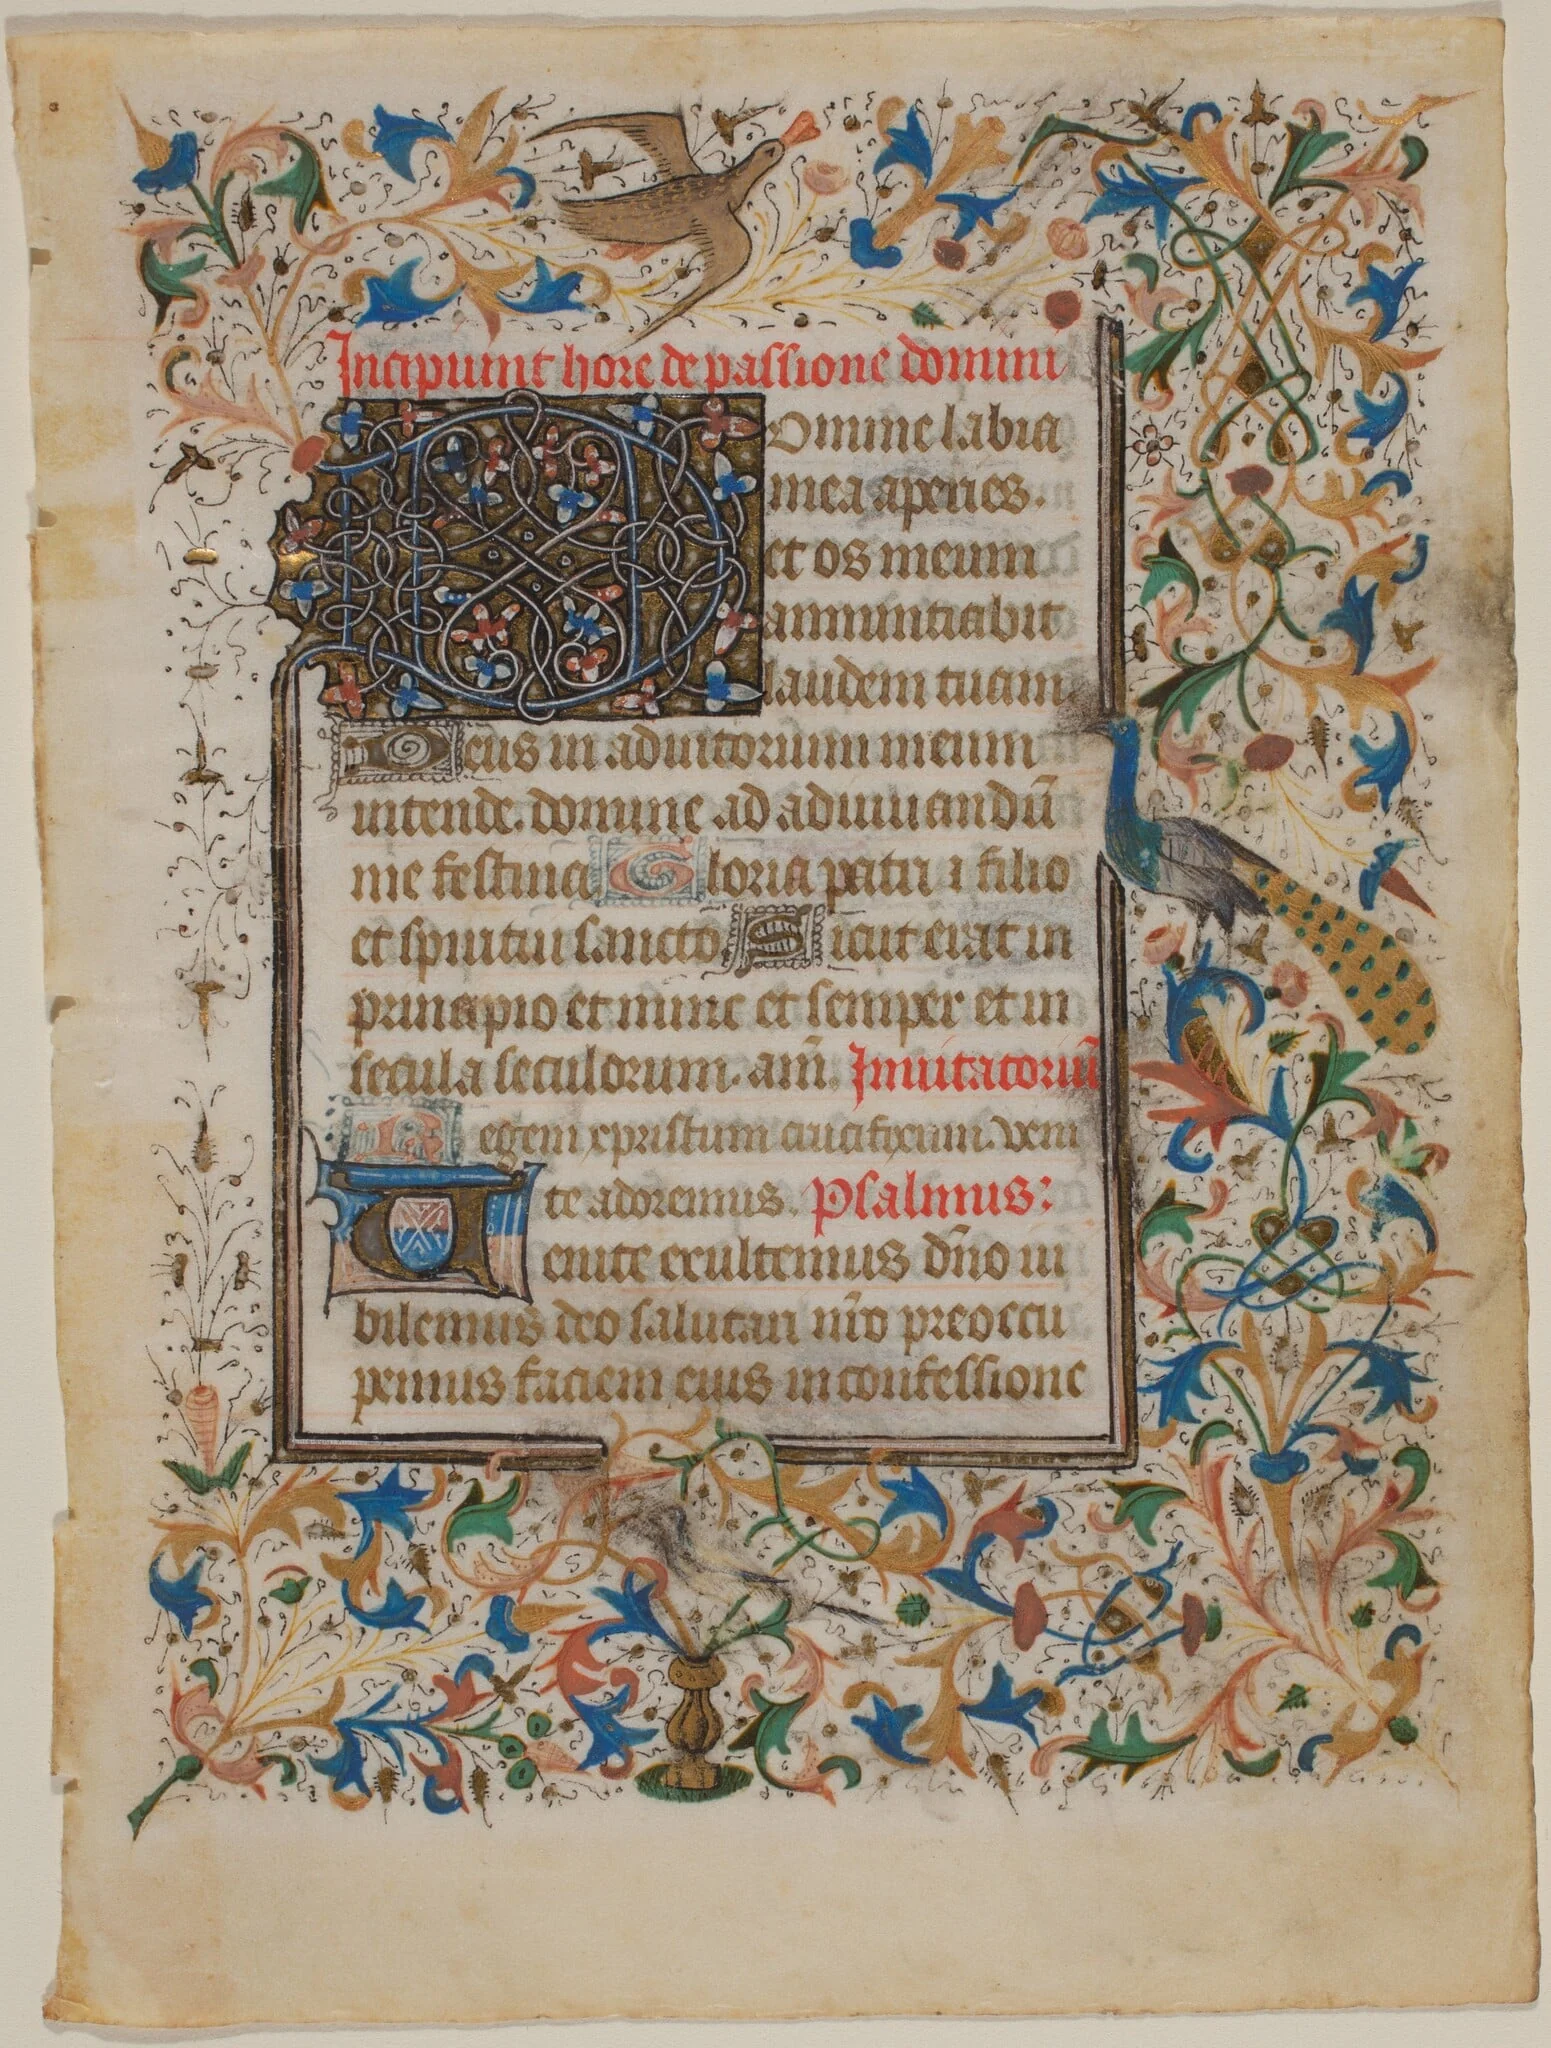 Incipiunt hore de passione domini
Domine labia
mea aperies.
et os meum
annunciabit
laudem tuam
Deus in adiutorium meum
intende. domine ad adiuuandū
me festina Gloria patri ⁊ filio
et spiritui sancto. Sicut erat in
principio et nunc et semper et in
secula seculorum. am̄. Inuitatoriū
Regem xpristum crucifixum. veni
te adoremus. Psalmus:
Venite exultemus dn̄o iu
bilemus deo salutari nr̄o preoccu
pemus faciem eius in confessione